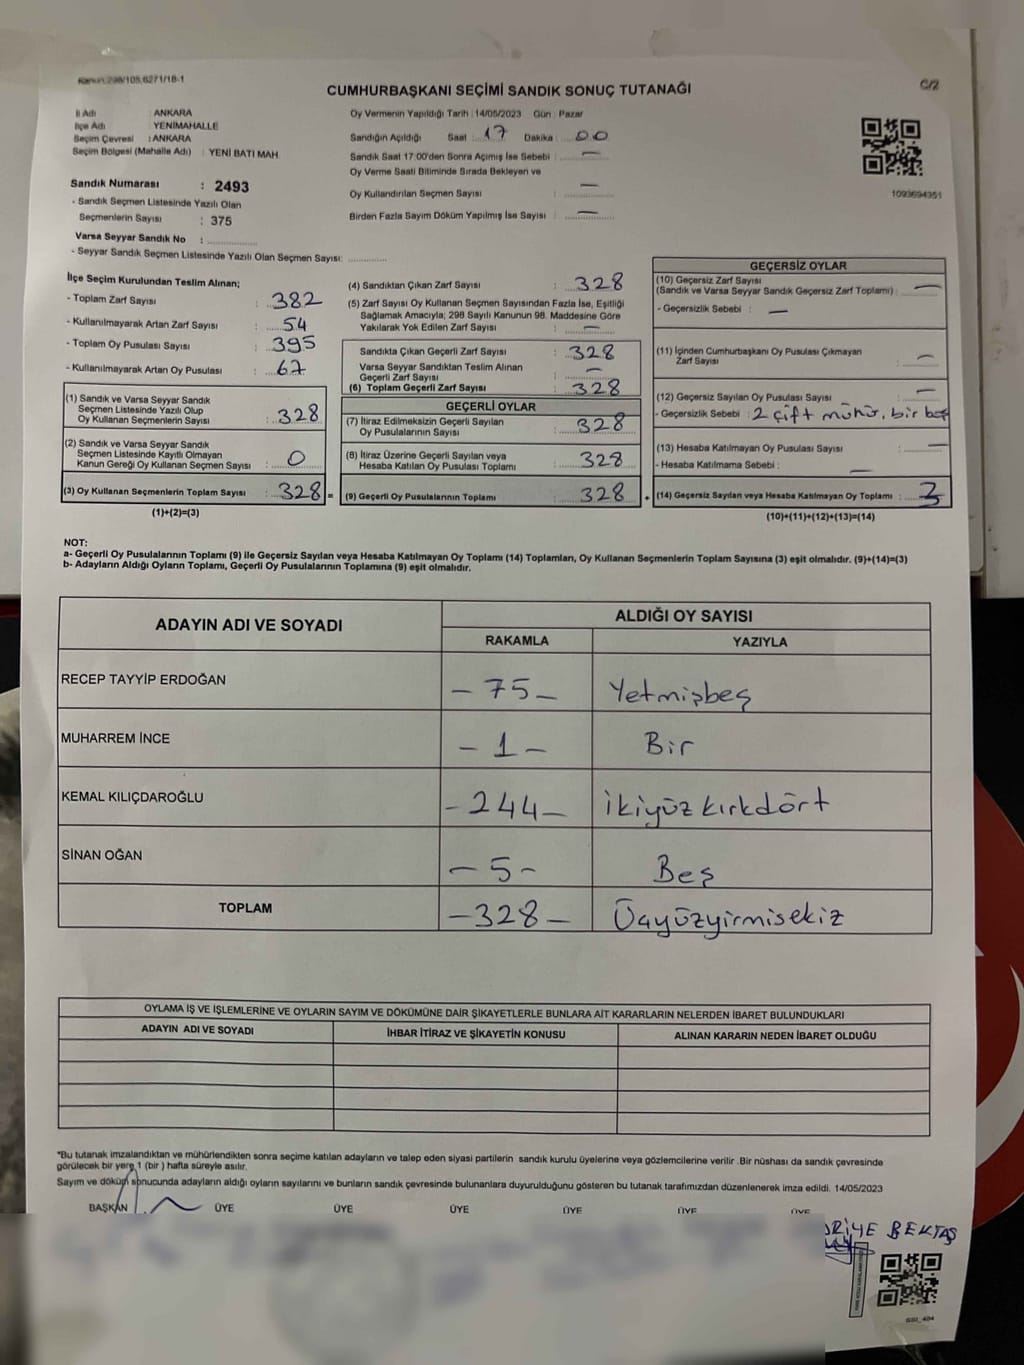 Kanun:298/105,6271/18-1
C/2
CUMHURBAŞKANI SEÇİMİ SANDIK SONUÇ TUTANAĞI
İl Adı : ANKARA
İlçe Adı : YENİMAHALLE
Seçim Çevresi : ANKARA
Seçim Bölgesi (Mahalle Adı) : YENİ BATI MAH.
Sandık Numarası : 2493
- Sandık Seçmen Listesinde Yazılı Olan
Seçmenlerin Sayısı : 375
Varsa Seyyar Sandık No :
- Seyyar Sandık Seçmen Listesinde Yazılı Olan Seçmen Sayısı:
Oy Vermenin Yapıldığı Tarih : 14/05/2023 Gün : Pazar
Sandığın Açıldığı Saat : 17 Dakika : 00
Sandık Saat 17:00'den Sonra Açımış İse Sebebi : —
Oy Verme Saati Bitiminde Sırada Bekleyen ve
Oy Kullandırılan Seçmen Sayısı —
Birden Fazla Sayım Döküm Yapılmış İse Sayısı : —
1093694351
İlçe Seçim Kurulundan Teslim Alınan;
- Toplam Zarf Sayısı : 382
- Kullanılmayarak Artan Zarf Sayısı : 54
- Toplam Oy Pusulası Sayısı : 395
- Kullanılmayarak Artan Oy Pusulası : 67
(1) Sandık ve Varsa Seyyar Sandık
Seçmen Listesinde Yazılı Olup
Oy Kullanan Seçmenlerin Sayısı : 328
(2) Sandık ve Varsa Seyyar Sandık
Seçmen Listesinde Kayıtlı Olmayan
Kanun Gereği Oy Kullanan Seçmen Sayısı : 0
(3) Oy Kullanan Seçmenlerin Toplam Sayısı : 328 =
(1)+(2)=(3)
(4) Sandıktan Çıkan Zarf Sayısı : 328
(5) Zarf Sayısı Oy Kullanan Seçmen Sayısından Fazla İse, Eşitliği
Sağlamak Amacıyla; 298 Sayılı Kanunun 98. Maddesine Göre
Yakılarak Yok Edilen Zarf Sayısı : —
Sandıkta Çıkan Geçerli Zarf Sayısı : 328
Varsa Seyyar Sandıktan Teslim Alınan
Geçerli Zarf Sayısı : —
(6) Toplam Geçerli Zarf Sayısı : 328
GEÇERLİ OYLAR
(7) İtiraz Edilmeksizin Geçerli Sayılan
Oy Pusulalarının Sayısı : 328
(8) İtiraz Üzerine Geçerli Sayılan veya
Hesaba Katılan Oy Pusulası Toplamı : 328
(9) Geçerli Oy Pusulalarının Toplamı : 328 +
GEÇERSİZ OYLAR
(10) Geçersiz Zarf Sayısı
(Sandık ve Varsa Seyyar Sandık Geçersiz Zarf Toplamı) : —
- Geçersizlik Sebebi : —
(11) İçinden Cumhurbaşkanı Oy Pusulası Çıkmayan
Zarf Sayısı : —
(12) Geçersiz Sayılan Oy Pusulası Sayısı : —
- Geçersizlik Sebebi : 2 çift mühür, bir boş
(13) Hesaba Katılmayan Oy Pusulası Sayısı : —
- Hesaba Katılmama Sebebi : —
(14) Geçersiz Sayılan veya Hesaba Katılmayan Oy Toplamı : 3
(10)+(11)+(12)+(13)=(14)
NOT:
a- Geçerli Oy Pusulalarının Toplamı (9) ile Geçersiz Sayılan veya Hesaba Katılmayan Oy Toplamı (14) Toplamları, Oy Kullanan Seçmenlerin Toplam Sayısına (3) eşit olmalıdır. (9)+(14)=(3)
b- Adayların Aldığı Oyların Toplamı, Geçerli Oy Pusulalarının Toplamına (9) eşit olmalıdır.
ADAYIN ADI VE SOYADI
ALDIĞI OY SAYISI
RAKAMLA YAZIYLA
RECEP TAYYİP ERDOĞAN – 75 – Yetmişbeş
MUHARREM İNCE – 1 – Bir
KEMAL KILIÇDAROĞLU – 244 – ikiyüzkırkdört
SİNAN OĞAN – 5 – Beş
TOPLAM – 328 – Üçyüzyirmisekiz
OYLAMA İŞ VE İŞLEMLERİNE VE OYLARIN SAYIM VE DÖKÜMÜNE DAİR ŞİKAYETLERLE BUNLARA AİT KARARLARIN NELERDEN İBARET BULUNDUKLARI
ADAYIN ADI VE SOYADI İHBAR İTİRAZ VE ŞİKAYETİN KONUSU ALINAN KARARIN NEDEN İBARET OLDUĞU
*Bu tutanak imzalandıktan ve mühürlendikten sonra seçime katılan adayların ve talep eden siyasi partilerin sandık kurulu üyelerine veya gözlemcilerine verilir .Bir nüshası da sandık çevresinde
görülecek bir yere 1 (bir ) hafta süreyle asılır.
Sayım ve döküm sonucunda adayların aldığı oyların sayılarını ve bunların sandık çevresinde bulunanlara duyurulduğunu gösteren bu tutanak tarafımızdan düzenlenerek imza edildi. 14/05/2023
BAŞKAN ÜYE ÜYE ÜYE ÜYE ÜYE ÜYE
BEKTAŞ